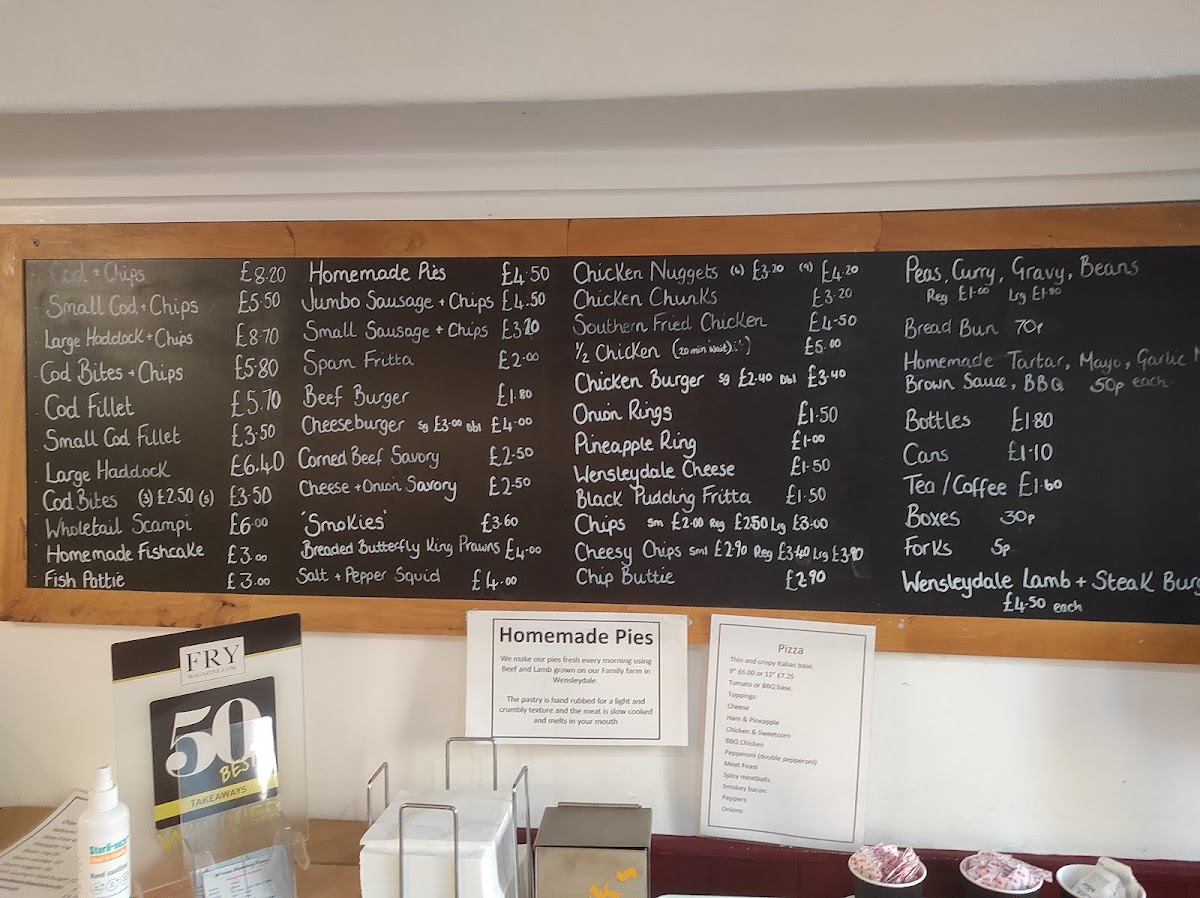 Cod + Chips £8.20
Small Cod + Chips £5.50
Large Haddock + Chips £8.70
Cod Bites + Chips £5.80
Cod Fillet £5.70
Small Cod Fillet £3.50
Large Haddock £6.40
Cod Bites (3) £2.50 (5) £3.50
Wholetail Scampi £6.00
Homemade Fishcake £3.00
Fish Pattie £3.00
Homemade Pies £4.50
Jumbo Sausage + Chips £4.50
Small Sausage + Chips £3.20
Spam Fritta £2.00
Beef Burger £1.80
Cheeseburger sg £3.00 Dbl £4.00
Corned Beef Savory £2.50
Cheese + Onion Savory £2.50
'Smokies' £3.60
Breaded Butterfly King Prawns £4.00
Salt + Pepper Squid £4.00
Chicken Nuggets (6) £3.20 (9) £4.20
Chicken Chunks £3.20
Southern Fried Chicken £4.50
½ Chicken (20 min wait) £5.00
Chicken Burger sg £2.40 Dbl £3.40
Onion Rings £1.50
Pineapple Ring £1.00
Wensleydale Cheese £1.50
Black Pudding Fritta £1.50
Chips sm £2.00 Reg £2.50 Lrg £3.00
Cheesy Chips sml £2.90 Reg £3.40 Lrg £3.90
Chip Buttie £2.90
Peas, Curry, Gravy, Beans
Reg £1.00 Lrg £1.80
Bread Bun 70p
Homemade Tartar, Mayo, Garlic
Brown Sauce, BBQ 50p each
Bottles £1.80
Cans £1.10
Tea / Coffee £1.60
Boxes 30p
Forks 5p
Wensleydale Lamb + Steak Burg
£4.50 each
FRY
MAGAZINE.COM
50
BEST
TAKEAWAYS
Homemade Pies
We make our pies fresh every morning using
Beef and Lamb grown on our Family farm in
Wensleydale.
The pastry is hand rubbed for a light and
crumbly texture and the meat is slow cooked
and melts in your mouth
Pizza
Thin and crispy Italian base.
9" £6.00 or 12" £7.25
Tomato or BBQ base.
Toppings:
Cheese
Ham & Pineapple
Chicken & Sweetcorn
BBQ Chicken
Pepperoni (double pepperoni)
Meat Feast
Spicy meatballs
Smokey bacon
Peppers
Onions